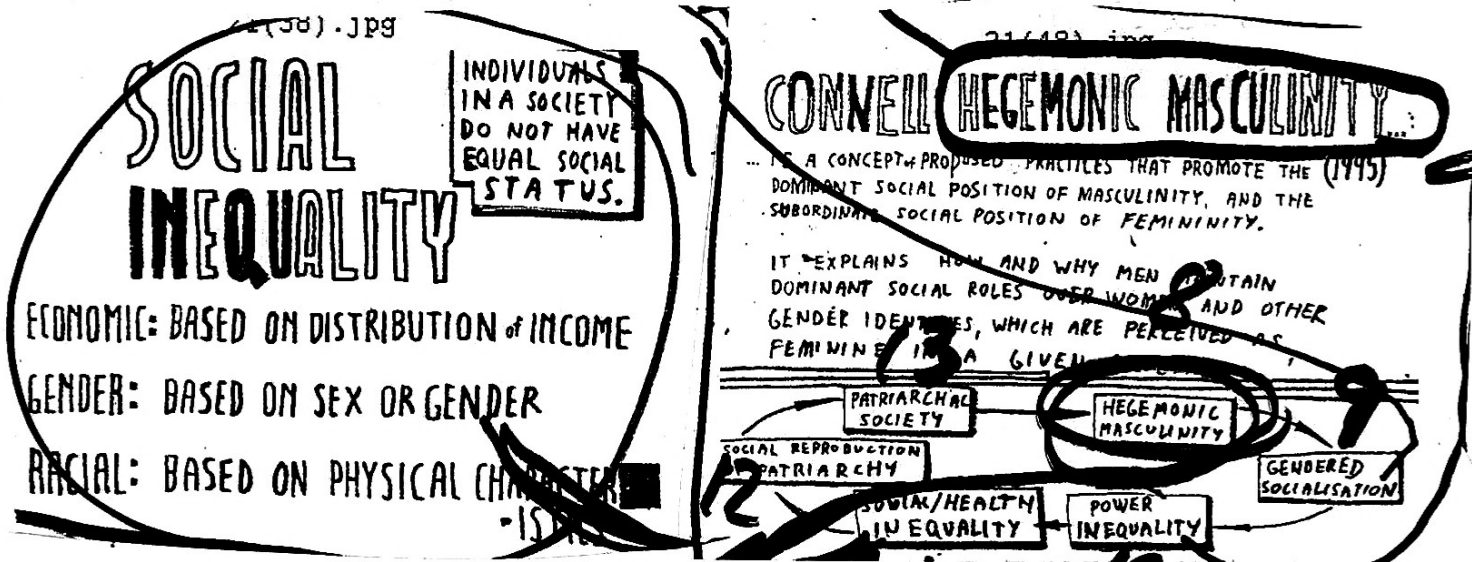 21(38).jpg
SOCIAL
INEQUALITY
INDIVIDUALS
IN A SOCIETY
DO NOT HAVE
EQUAL SOCIAL
STATUS.
ECONOMIC: BASED ON DISTRIBUTION of INCOME
GENDER: BASED ON SEX OR GENDER
RACIAL: BASED ON PHYSICAL CHARACTER
21(48).jpg
CONNELL HEGEMONIC MASCULINITY...
... IS A CONCEPT of PROPOSED PRACTICES THAT PROMOTE THE (1995)
DOMINANT SOCIAL POSITION OF MASCULINITY, AND THE
SUBORDINATE SOCIAL POSITION OF FEMININITY.
IT EXPLAINS HOW AND WHY MEN MAINTAIN
DOMINANT SOCIAL ROLES OVER WOMEN AND OTHER
GENDER IDENTITIES, WHICH ARE PERCEIVED AS
FEMININE IN A GIVEN
8
13
9
12
PATRIARCHAL
SOCIETY
HEGEMONIC
MASCULINITY
GENDERED
SOCIALISATION
POWER
INEQUALITY
SOCIAL/HEALTH
INEQUALITY
SOCIAL REPRODUCTION
PATRIARCHY